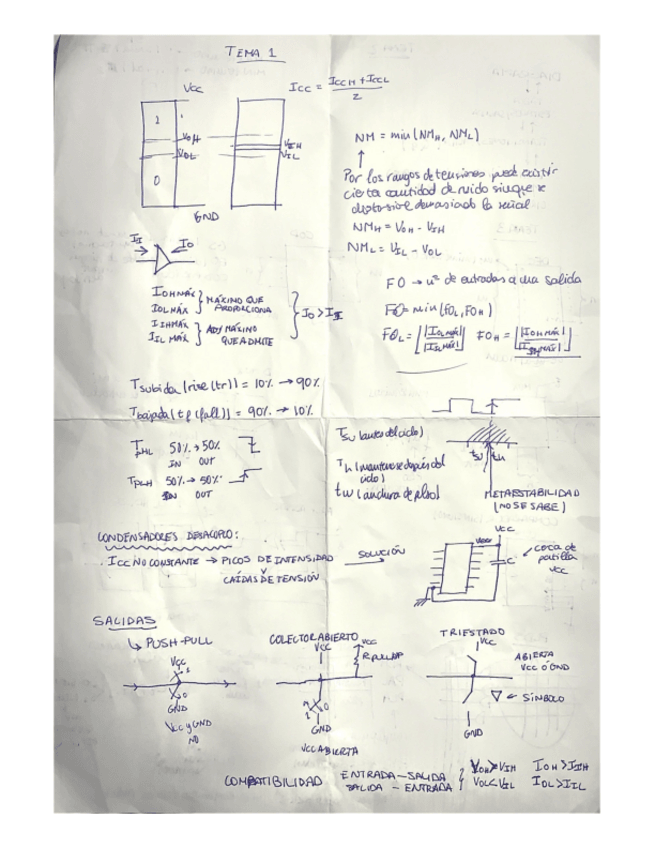 TEMA 1
VCC
ICC = ICCH + ICCL
2
1
VOH
VOL
0
VIH
VIL
GND
NM = min(NMH, NML)
Por los rangos de tensiones puede existir
cierta cantidad de ruido sin que se
distorsione demasiado la señal
NMH = VOH - VIH
NML = VIL - VOL
II
IO
FO → nº de entradas a una salida
IOHMÁX
IOLMÁX
MÁXIMO QUE
PROPORCIONA
IIHMÁX
IILMÁX
MÁXIMO
QUE ADMITE
IO > II
FO = min(FOL, FOH)
FOL = ⌊|IOLMÁX| / |IILMÁX|⌋ FOH = ⌊|IOHMÁX| / |IIHMÁX|⌋
Tsubida (rise (tr)) = 10% → 90%
Tbajada (tf (fall)) = 90% → 10%
TPHL 50% → 50%
IN OUT
TPLH 50% → 50%
IN OUT
Tsu (antes del ciclo)
Th (mantenerse después del
ciclo)
tw (anchura de pulso)
tsu th
METAESTABILIDAD
(NO SE SABE)
CONDENSADORES DESACOPLO:
ICC NO CONSTANTE → PICOS DE INTENSIDAD
CAÍDAS DE TENSIÓN
SOLUCIÓN
VCC
C
cerca de
patilla
VCC
SALIDAS
↳ PUSH-PULL
VCC
1
0
GND
VCC y GND
NO
COLECTOR ABIERTO
VCC
VCC
R PULL UP
0
1
GND
VCC ABIERTA
TRIESTADO
VCC
ABIERTA
VCC O GND
▽ ← SÍMBOLO
GND
COMPATIBILIDAD ENTRADA - SALIDA
SALIDA - ENTRADA
VOH > VIH IOH > IIH
VOL < VIL IOL > IIL